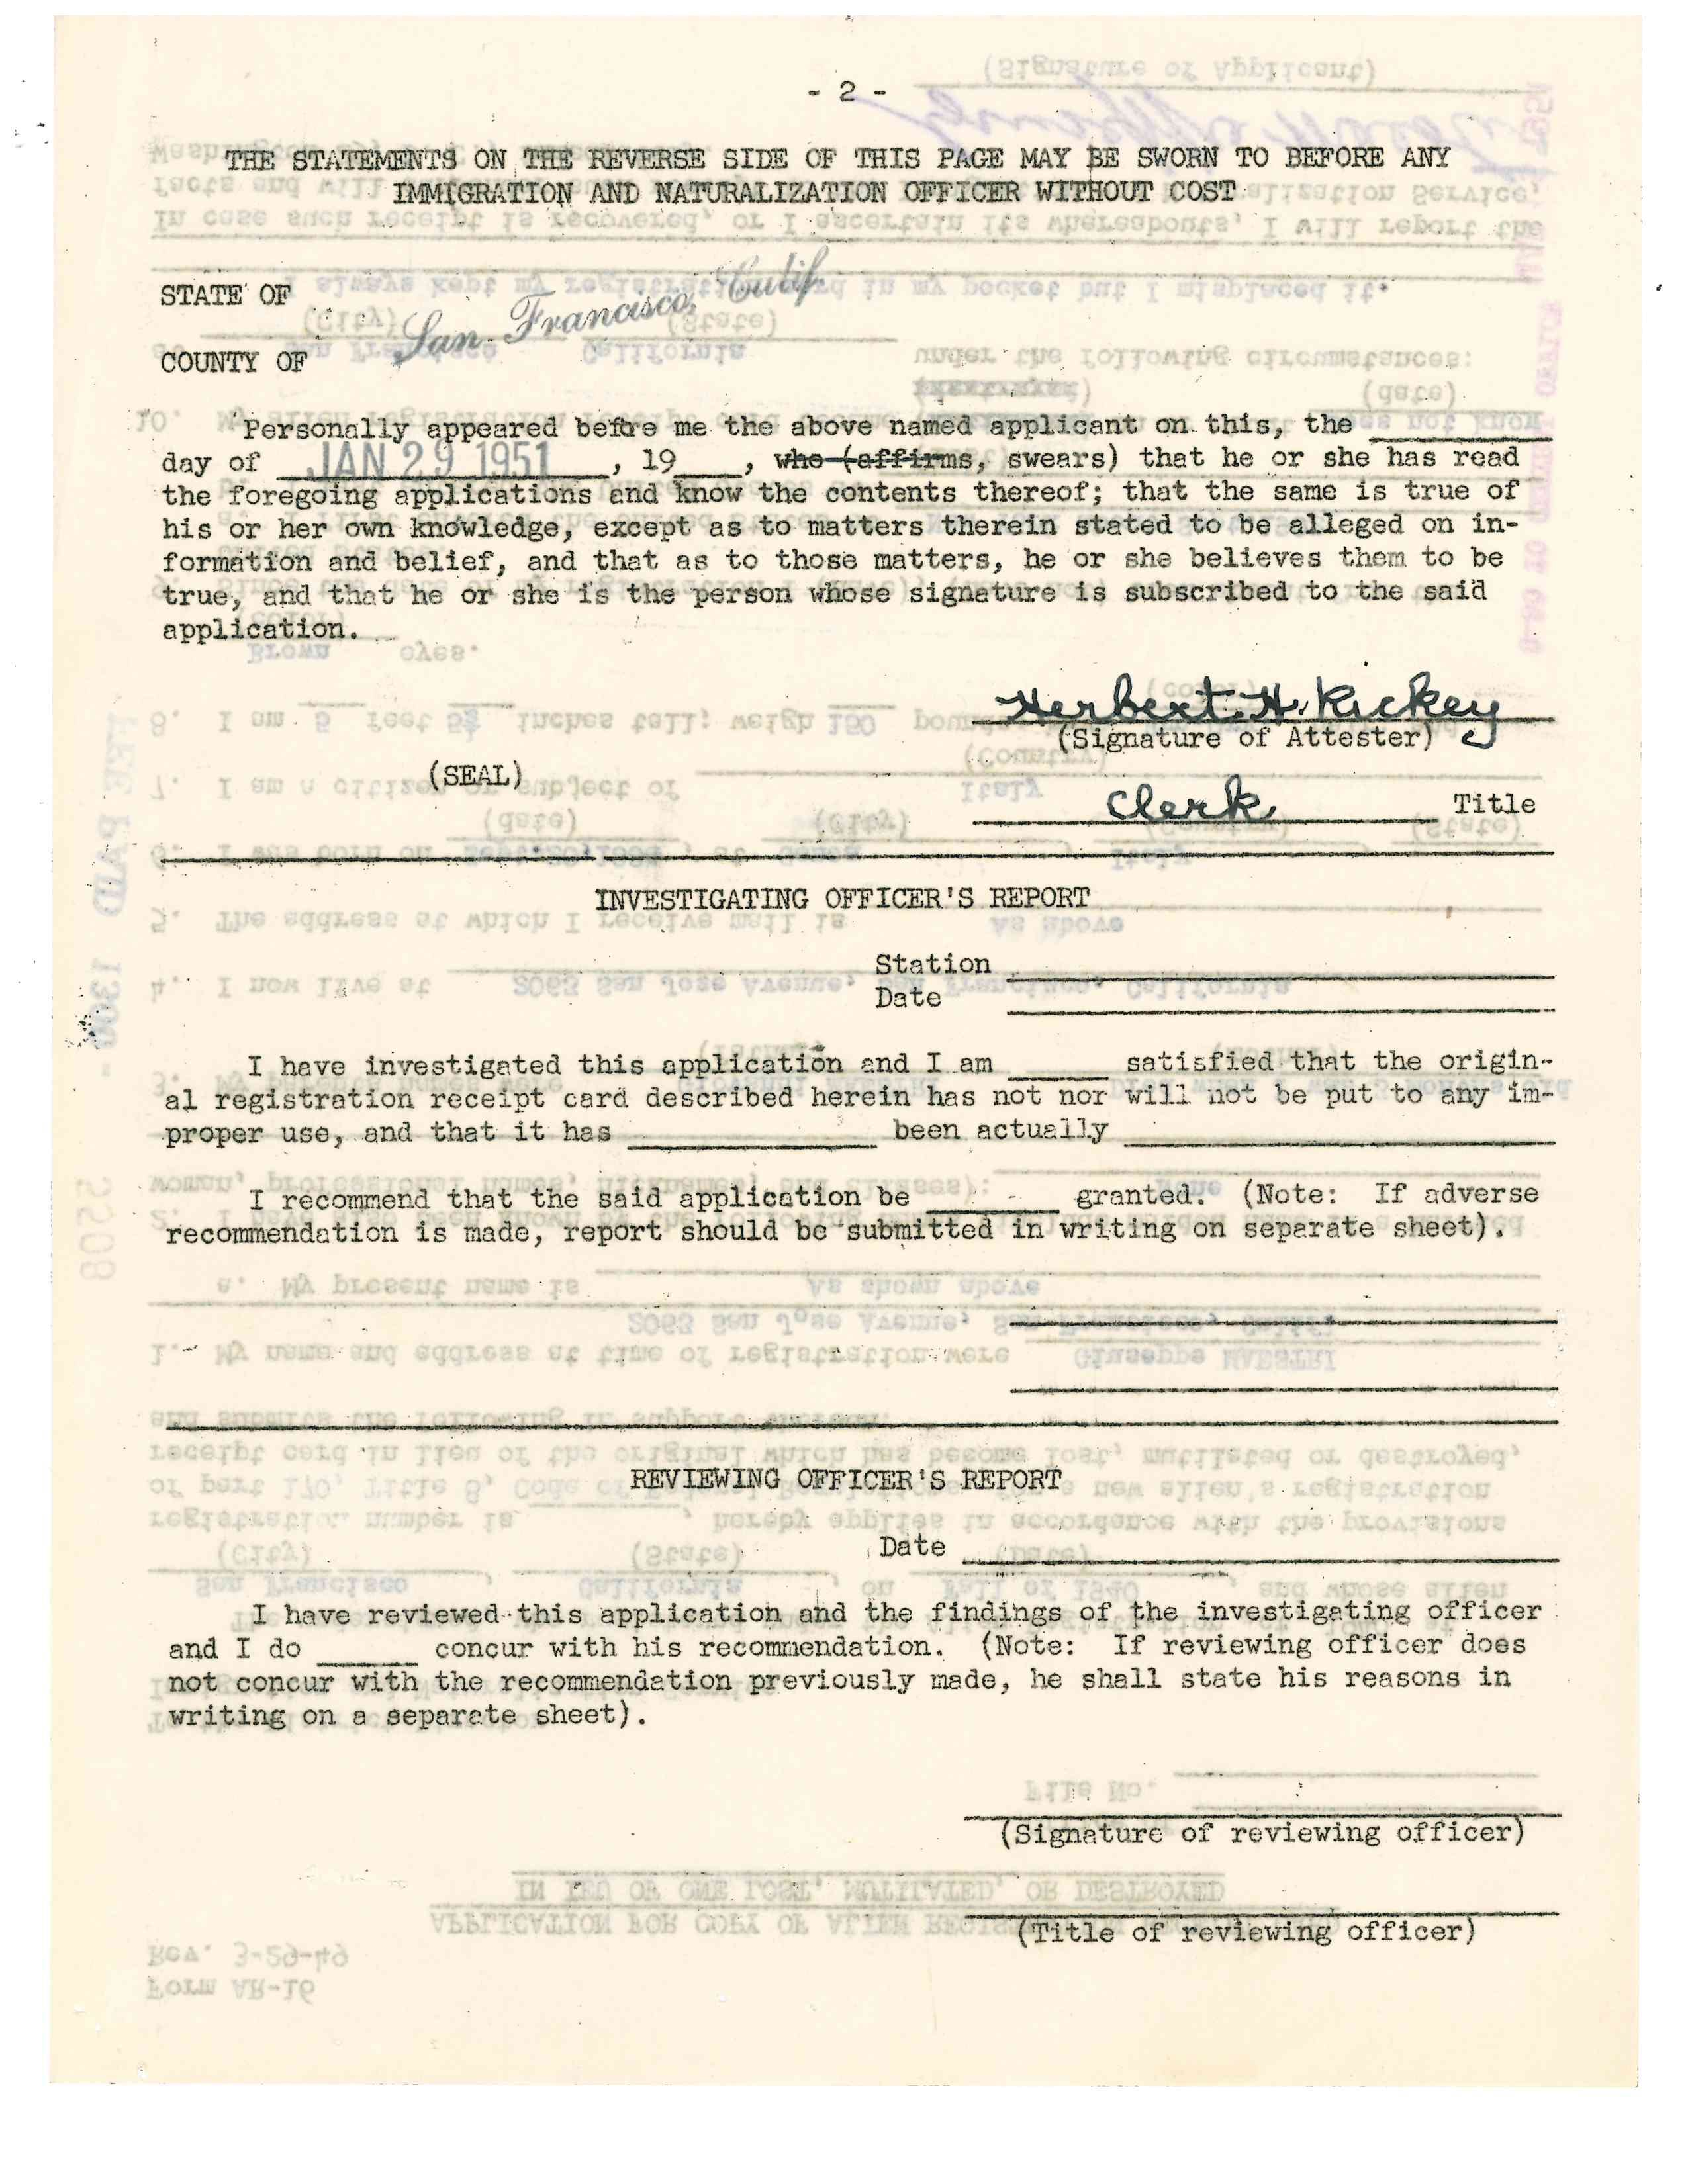 - 2 -
THE STATEMENTS ON THE REVERSE SIDE OF THIS PAGE MAY BE SWORN TO BEFORE ANY
IMMIGRATION AND NATURALIZATION OFFICER WITHOUT COST
STATE OF
San Francisco, Calif.
COUNTY OF
Personally appeared before me the above named applicant on this, the ______
day of JAN 29 1951, 19___, who (affirms, swears) that he or she has read
the foregoing applications and know the contents thereof; that the same is true of
his or her own knowledge, except as to matters therein stated to be alleged on in-
formation and belief, and that as to those matters, he or she believes them to be
true, and that he or she is the person whose signature is subscribed to the said
application.
Herbert H. Rickey
(Signature of Attester)
(SEAL)
Clerk Title
INVESTIGATING OFFICER'S REPORT
Station
Date
I have investigated this application and I am _____ satisfied that the origin-
al registration receipt card described herein has not nor will not be put to any im-
proper use, and that it has ______ been actually ______
I recommend that the said application be ______ granted. (Note: If adverse
recommendation is made, report should be submitted in writing on separate sheet).
REVIEWING OFFICER'S REPORT
Date
I have reviewed this application and the findings of the investigating officer
and I do _____ concur with his recommendation. (Note: If reviewing officer does
not concur with the recommendation previously made, he shall state his reasons in
writing on a separate sheet).
(Signature of reviewing officer)
(Title of reviewing officer)